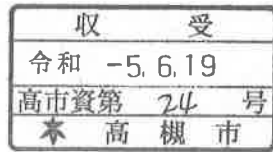 収受
令和 -5. 6. 19
高市資第 24 号
高槻市